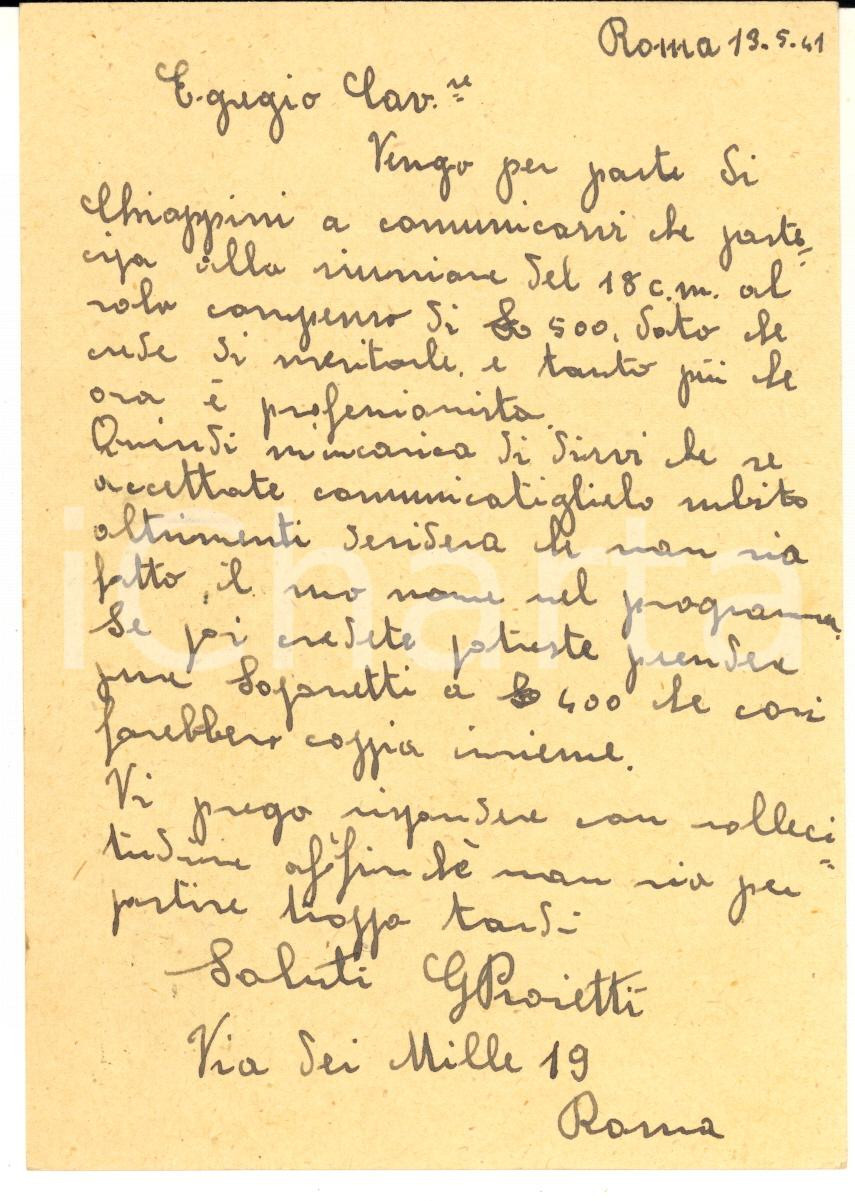 Roma 13.5.41
Egregio Cav.re
Vengo per parte di
Chiappini a comunicarvi che parte=
cipa alla riunione del 18 c.m. al
solo compenso di £ 500, dato che
crede di meritarle, e tanto più che
ora è professionista.
Quindi m'incarica di dirvi che se
accettate comunicatiglielo subito
altrimenti desidera che non sia
fatto il suo nome nel programma.
Se poi credete potreste prendere
pure Sofanetti a £ 400 che così
farebbero coppia insieme.
Vi prego rispondere con solleci=
tudine affinchè non sia per
partire troppo tardi
Saluti GProietti
Via dei Mille 19
Roma
iCharta